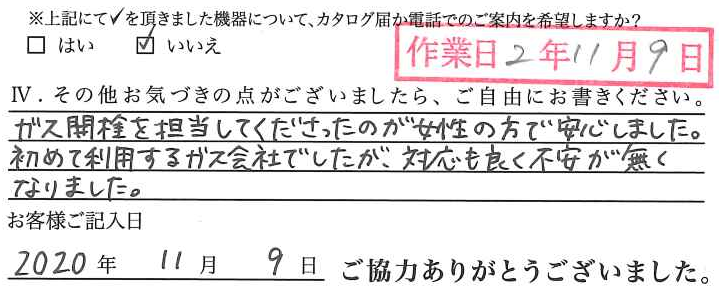 ※上記にて✓を頂きました機器について、カタログ届か電話でのご案内を希望しますか？
□ はい ☑ いいえ
作業日2年11月9日
Ⅳ．その他お気づきの点がございましたら、ご自由にお書きください。
ガス開栓を担当してくださったのが女性の方で安心しました。
初めて利用するガス会社でしたが、対応も良く不安が無く
なりました。
お客様ご記入日
2020年 11月 9日 ご協力ありがとうございました。